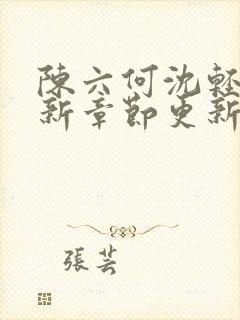 陳六何沈輕
新章節更新
張芸